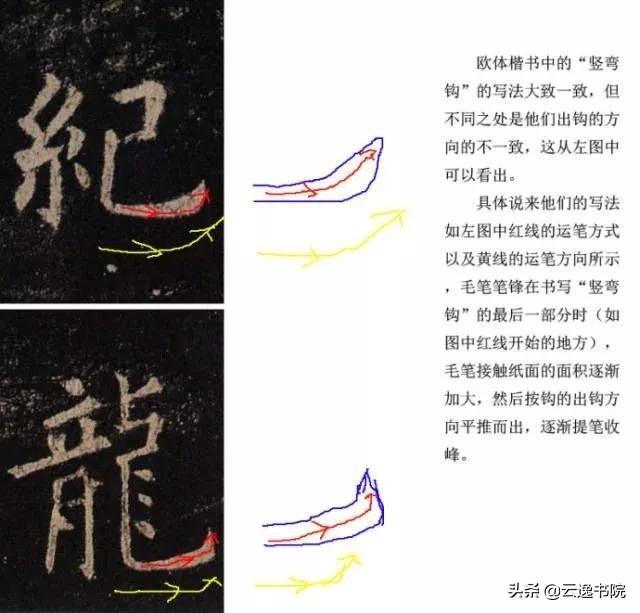 紀
龍
欧体楷书中的“竖弯
钩”的写法大致一致，但
不同之处是他们出钩的方
向的不一致，这从左图中
可以看出。
具体说来他们的写法
如左图中红线的运笔方式
以及黄线的运笔方向所示
，毛笔笔锋在书写“竖弯
钩”的最后一部分时（如
图中红线开始的地方），
毛笔接触纸面的面积逐渐
加大，然后按钩的出钩方
向平推而出，逐渐提笔收
峰。
头条 @云逸书院